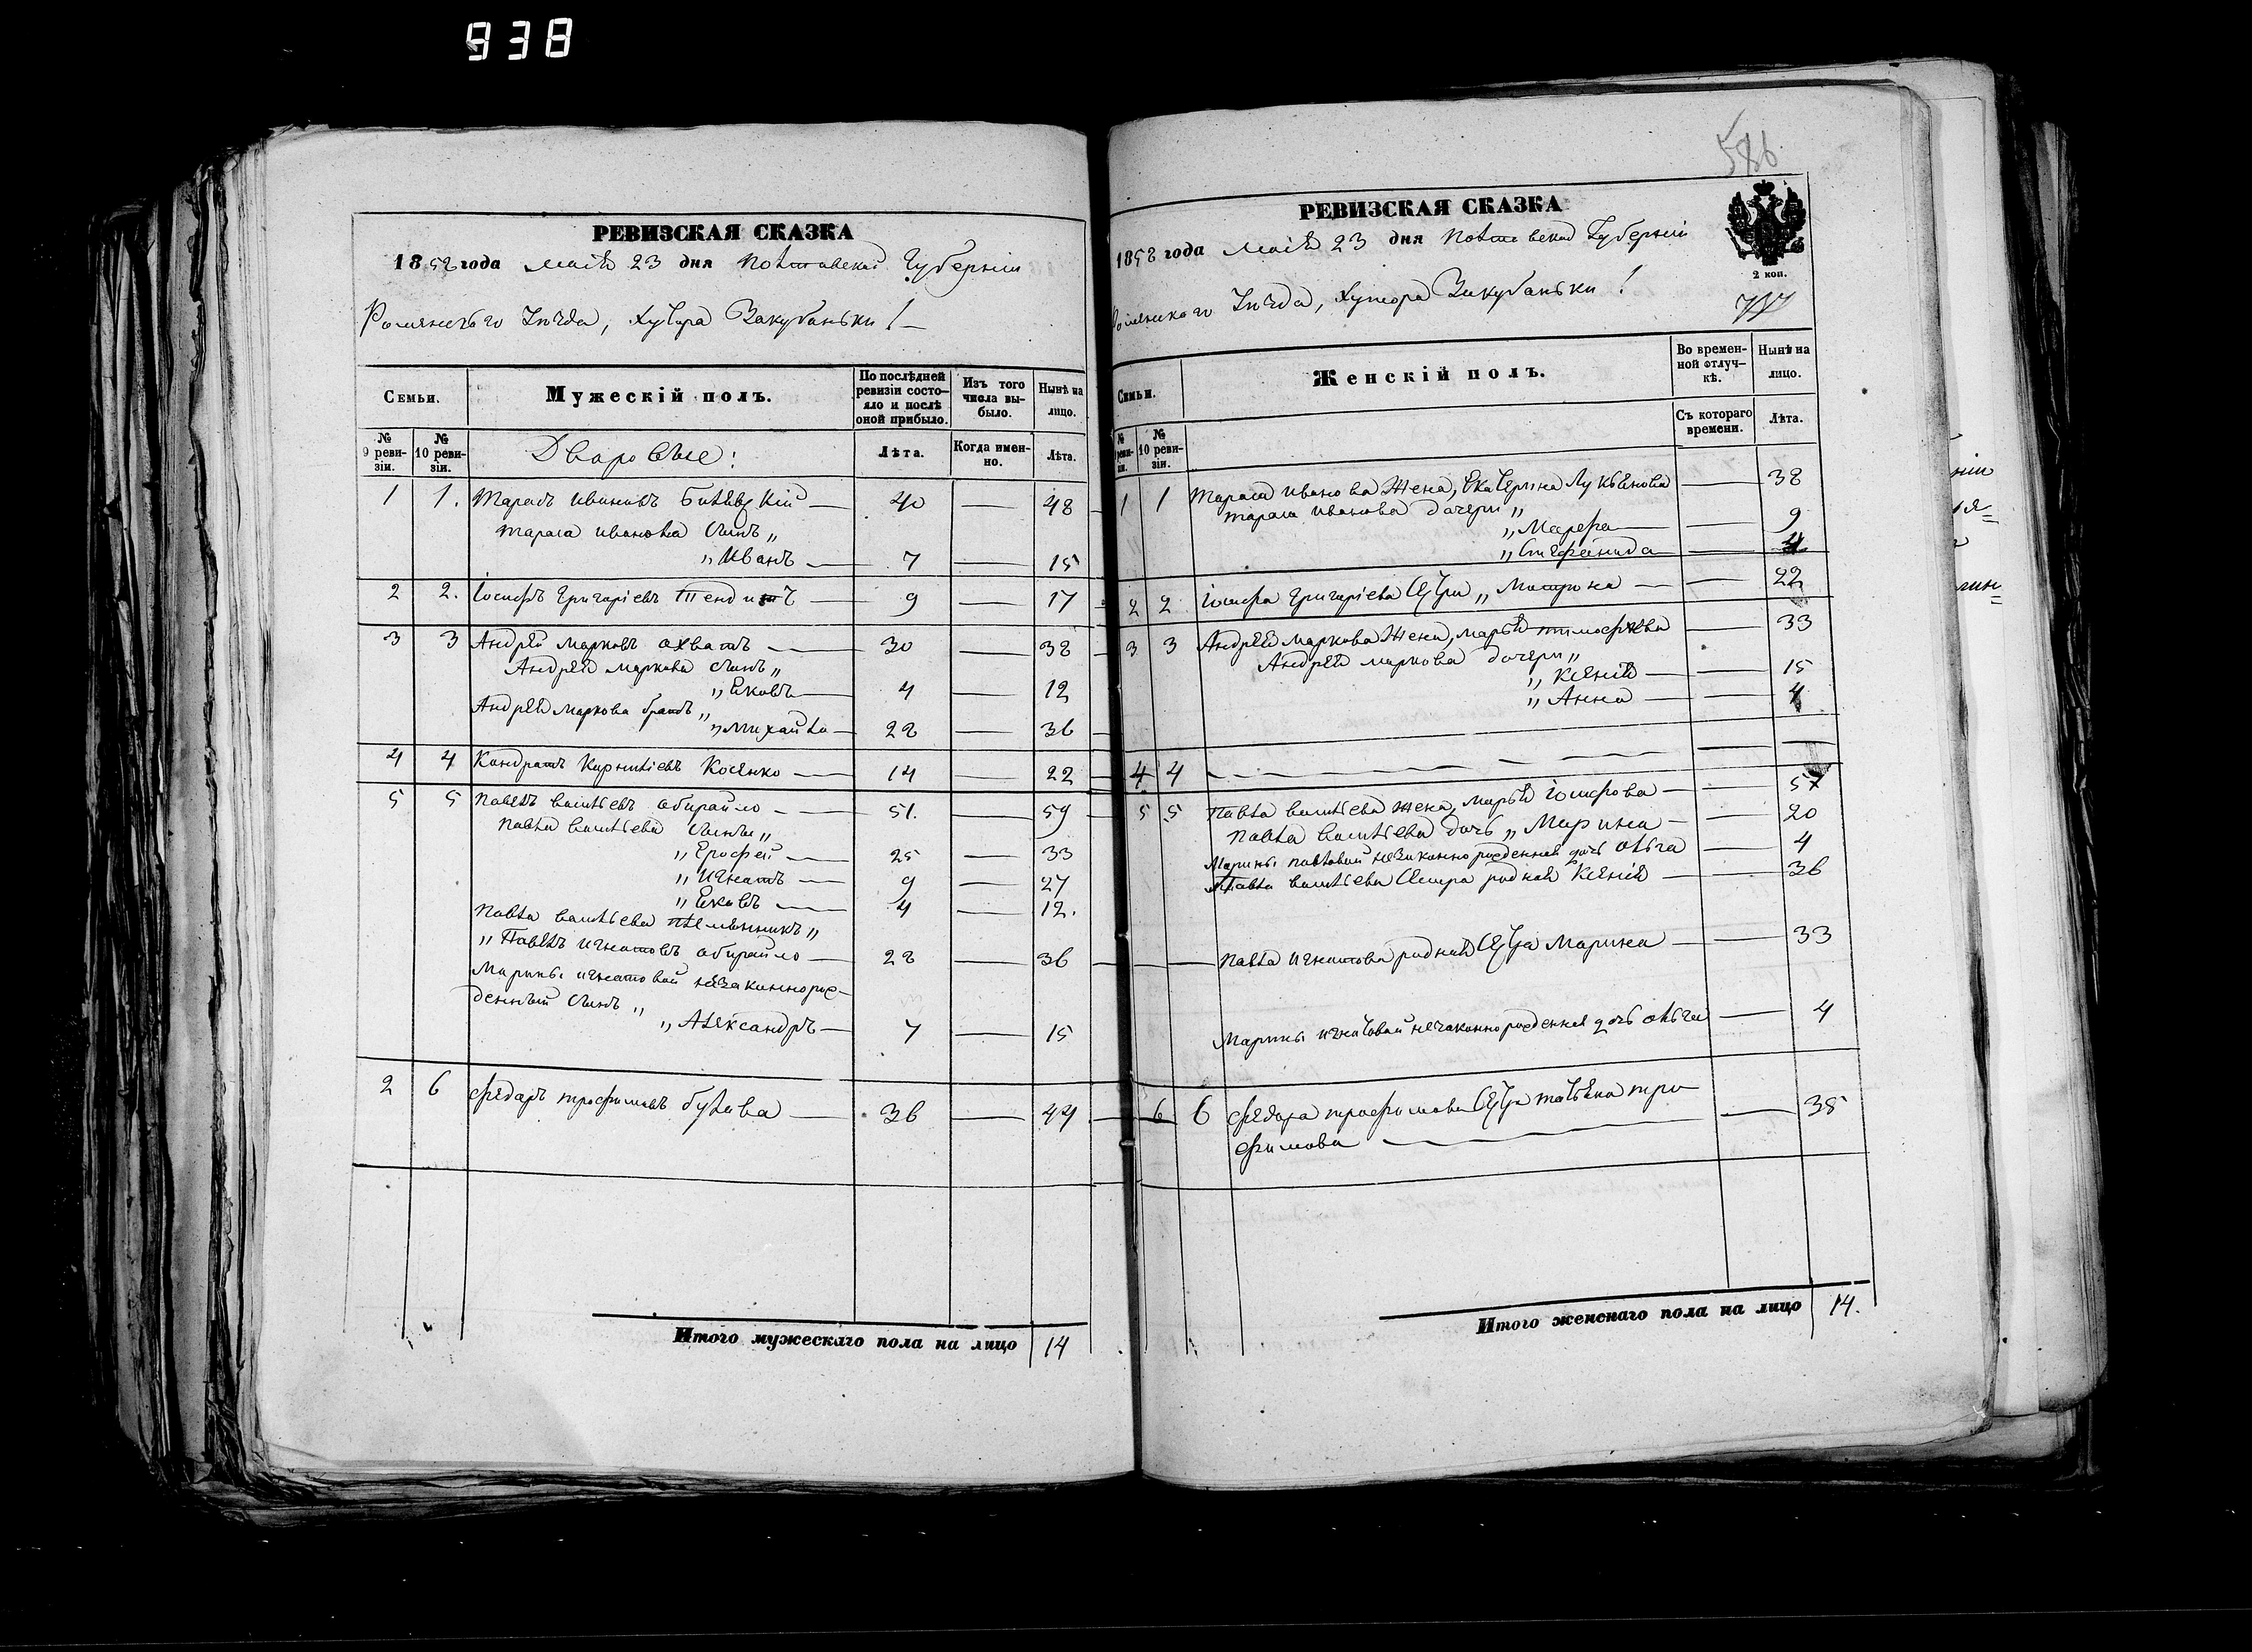 938
РЕВИЗСКАЯ СКАЗКА
1858 года маія 23 дня Полтавской Губерніи
Роменского Уѣзда, Хутора Закубаньки!
Семьи.
Мужескій полъ.
По послѣдней ревизіи состояло и послѣ оной прибыло.
Изъ того числа выбыло.
Нынѣ на лицо.
№ 9 ревизіи.
№ 10 ревизіи.
Дворовые:
Лѣта.
Когда именно.
Лѣта.
1 1. Тарасъ Ивановъ — 40 — 48
Тараса Иванова сынъ „
„ Иванъ — 7 — 15
2 2. Іосифъ Григоріевъ — 9 — 17
3 3 Андрей Марковъ Охватъ — 30 — 38
Андрея Маркова сынъ „
„ Яковъ — 4 — 12
Андрея Маркова братъ „
„ Михайла — 28 — 36
4 4 Кондратъ Косенко — 14 — 22
5 5 Павелъ Васильевъ Обирайло — 51. — 59
Павла Васильева сыны „
„ Ерофей — 25 — 33
„ Игнатъ — 9 — 27
„ Яковъ — 4 — 12.
Павла Васильева племянникъ „
„ Павелъ Игнатовъ Обирайло — 28 — 36
Марины Игнатовой незаконнорож-
денный сынъ „
„ Александръ — 7 — 15
2 6 Федоръ Трофимовъ Булава — 36 — 44
Итого мужескаго пола на лицо 14
586
РЕВИЗСКАЯ СКАЗКА
1858 года маія 23 дня Полтавской Губерніи
2 коп.
Роменского Уѣзда, Хутора Закубаньки!
Семьи.
Женскій полъ.
Во временной отлучкѣ.
Нынѣ на лицо.
№ 9 ревизіи.
№ 10 ревизіи.
Съ котораго времени.
Лѣта.
1 1 Тараса Иванова жена, Екатерина Лукьянова — 38
Тараса Иванова дочери „
„ Марфа — 9
„ Стефанида — 4
2 2 Іосифа Григоріева сестра „ Матрона — 22
3 3 Андрея Маркова жена, Марья Тимофеева — 33
Андрея Маркова дочери „
„ Ксенія — 15
„ Анна — 4
4 4 — — —
5 5 Павла Васильева жена, Марья Іосифова — 57
Павла Васильева дочь „ Марина — 20
Марины Павловой незаконнорожденная дочь Ольга — 4
Павла Васильева сестра родная Ксенія — 36
Павла Игнатова родная сестра Марина — 33
Марины Игнатовой незаконнорожденная дочь Ольга — 4
6 6 Федора Трофимова сестра Татьяна Тро-
фимова — 38
Итого женскаго пола на лицо 14.